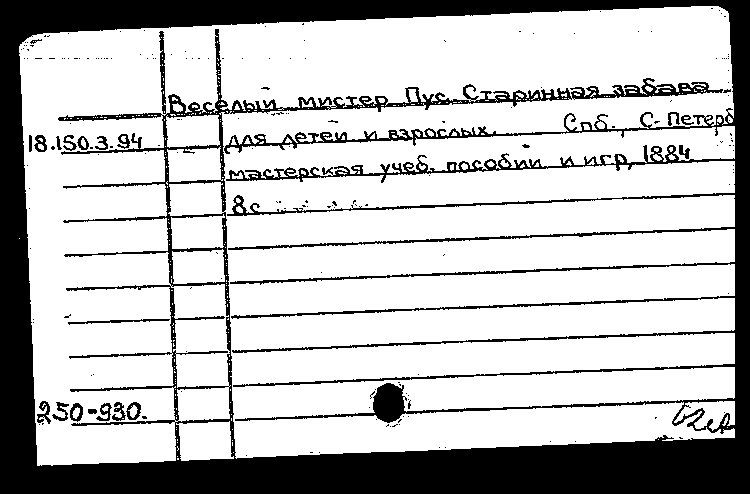 Веселый мистер Пус. Старинная забава
18.150.3.94 для детей и взрослых. Спб., С-Петерб
мастерская учеб. пособий и игр, 1884
8с
250-930.